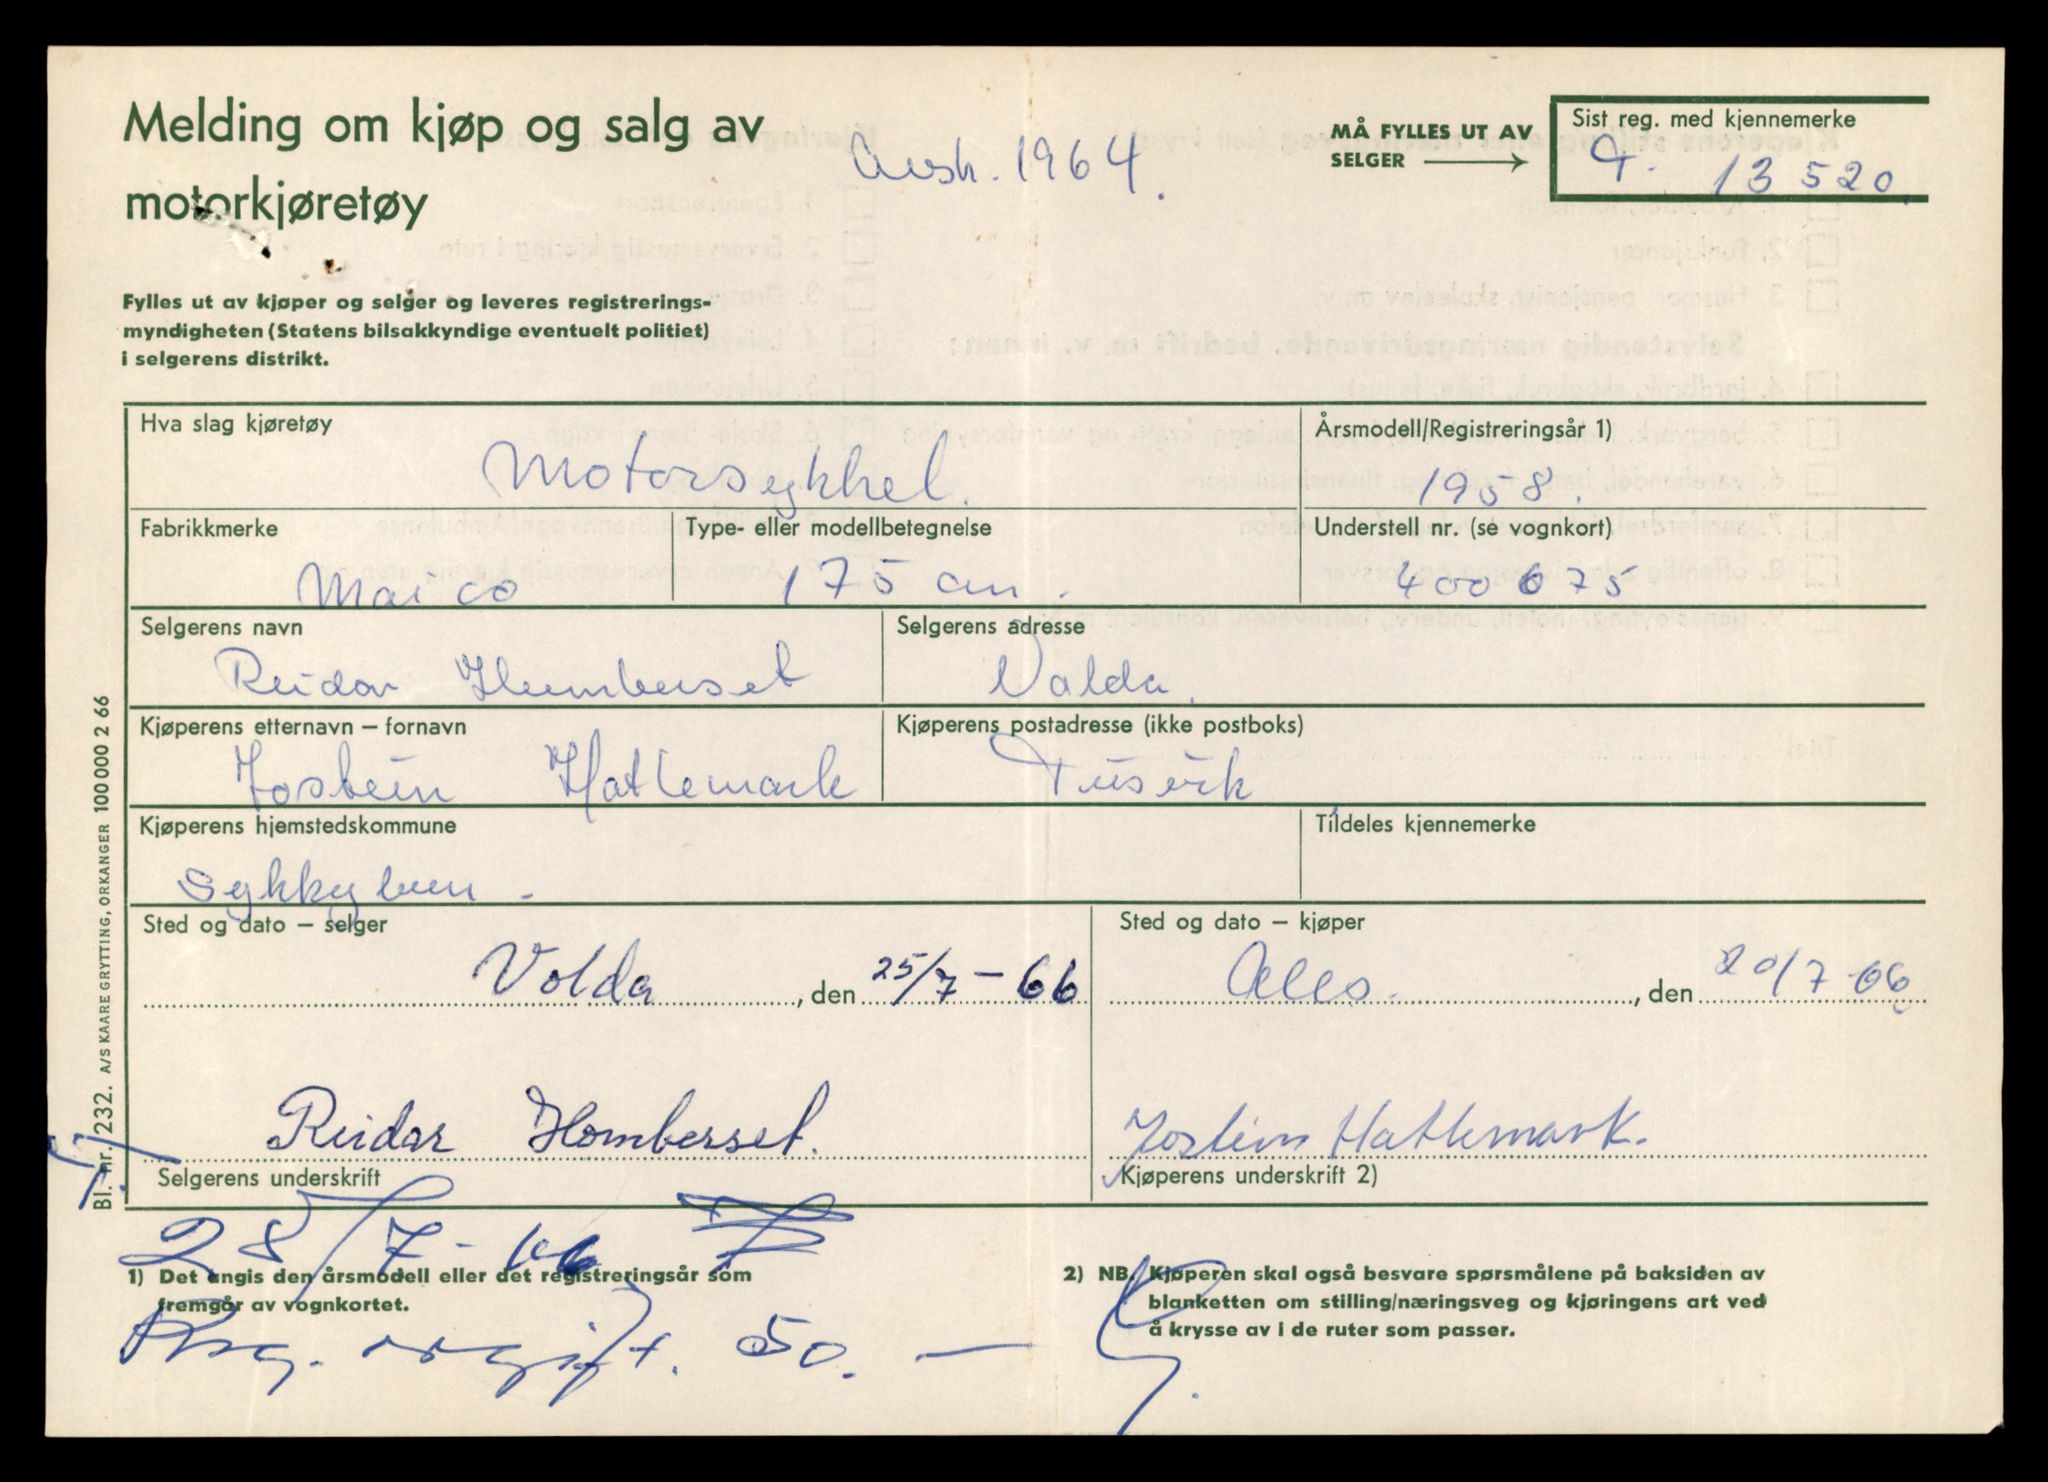 Melding om kjøp og salg av
motorkjøretøy
1964.
MÅ FYLLES UT AV
SELGER
Sist reg. med kjennemerke
T. 13520
Fylles ut av kjøper og selger og leveres registrerings-
myndigheten (Statens bilsakkyndige eventuelt politiet)
i selgerens distrikt.
Hva slag kjøretøy
Motorsykkel.
Årsmodell/Registreringsår 1)
1958.
Fabrikkmerke
Maico
Type- eller modellbetegnelse
175
Understell nr. (se vognkort)
400675
Selgerens navn
Reidar Humberset
Selgerens adresse
Volda.
Kjøperens etternavn – fornavn
Jostein Hatlemark
Kjøperens postadresse (ikke postboks)
Tusvik
Kjøperens hjemstedskommune
Sykkylven.
Tildeles kjennemerke
Sted og dato – selger
Volda, den 25/7-66
Sted og dato – kjøper
, den 20/7-66
Reidar Homberset.
Selgerens underskrift
Jostein Hatlemark.
Kjøperens underskrift 2)
28/7-66
1) Det angis den årsmodell eller det registreringsår som
fremgår av vognkortet.
Reg. avgift. 50.—
2) NB. Kjøperen skal også besvare spørsmålene på baksiden av
blanketten om stilling/næringsveg og kjøringens art ved
å krysse av i de ruter som passer.
Bl. nr. 232. A/S KAARE GRYTTING, ORKANGER 100 000 2 66